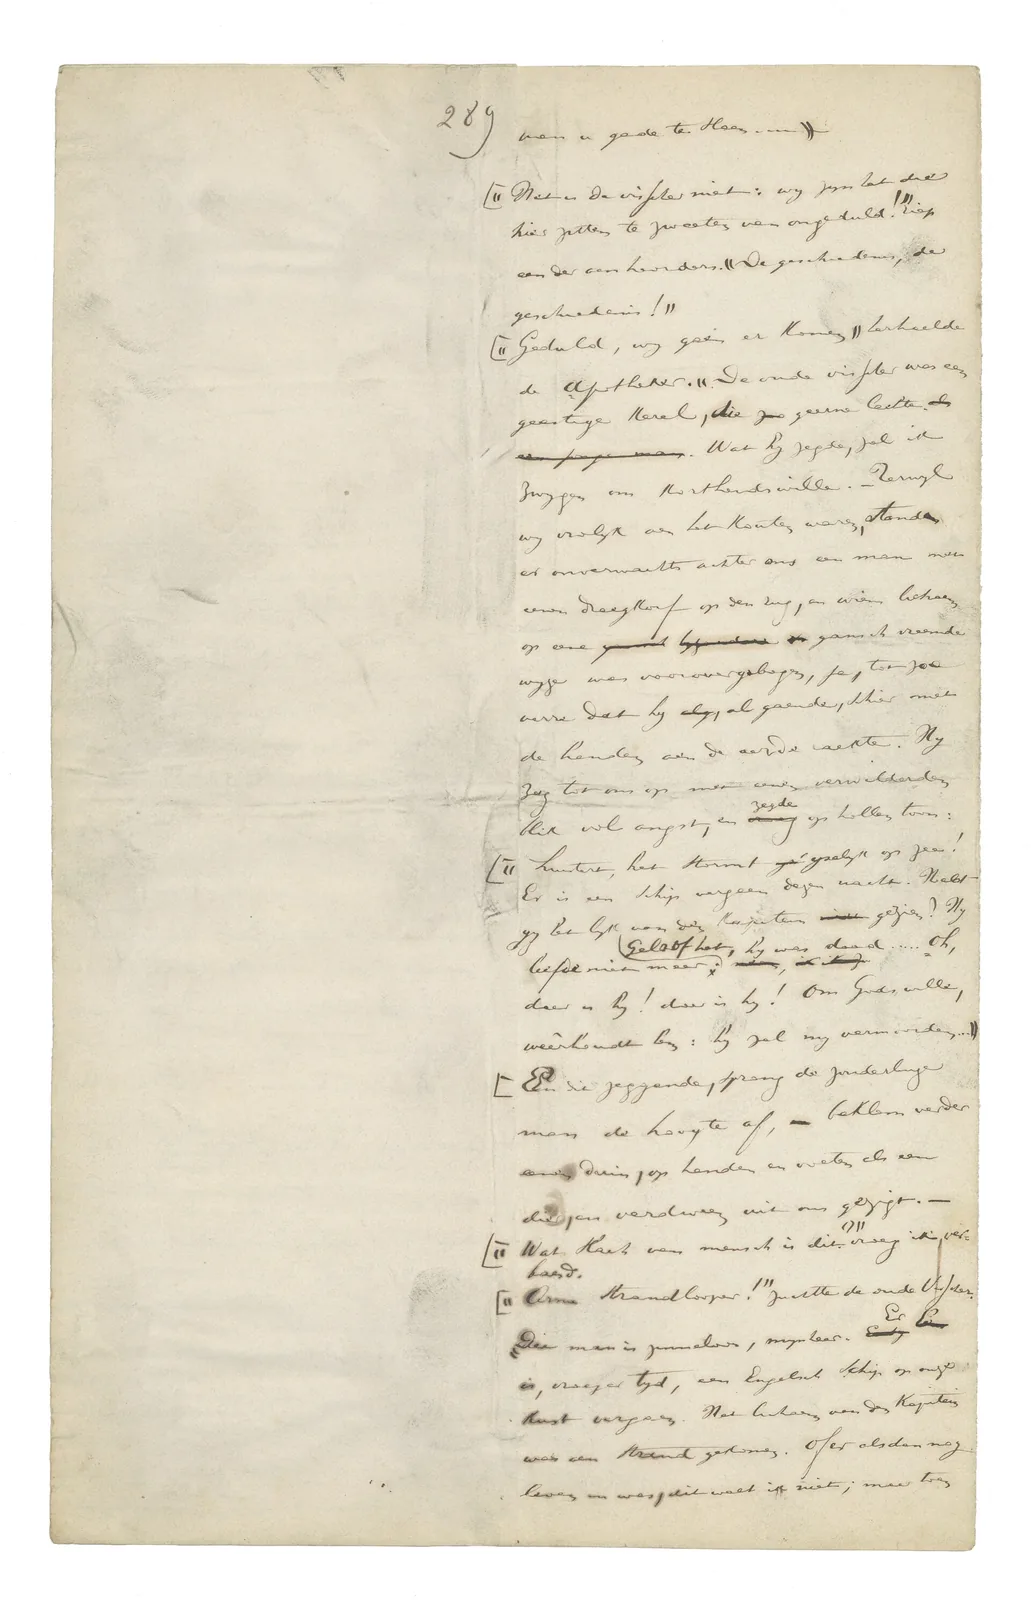 289
man u gade te Heer ......"
["Het is de visscher niet: wy zyn het die
hier zitten te zweeten van ongeduld!" riep
een der aenhoorders. "De geschiedenis, de
geschiedenis!"
["Geduld, wy gaen er komen" herhaelde
de Apotheker. "De oude visscher was een
geestige kerel, die zo geerne lachte. als
een jonge man. Wat hy zegde, zal ik
zwygen om kortheidswille. – Terwyl
wy vrolyk aen het kouten waren, stond
er onverwachts achter ons een man met
eenen draegkorf op den rug, en wiens lichaem
op eene gansch vreemde
wyze was voorovergebogen, ja, tot zoo
verre dat hy, al gaende, schier met
de handen aen de aerde raekte. Hy
zag tot ons op met eenen verwilderden
blik vol angst, en zegde op hollen toon:
["Luistert, het stormt yselyk op zee!
Er is een schip vergaen dezen nacht. Hebt
gy het lyk van den kapitein niet gezien? Hy
leefde niet meer; Geloof het, hy was dood ..... Oh,
daer is hy! daer is hy! Om Godswille,
weêrhoudt hem: hy zal my vermoorden..."
[En dit zeggende, sprong de zonderlinge
man de hoogte af, – beklom verder
eenen duin, op handen en voeten als een
dier, en verdween uit ons gezigt. –
["Wat slach van mensch is dit?" vroeg ik, ver-
baesd.
["Arme Strandlooper!" zuchtte de oude Visscher.
"Die man is zinneloos, mynheer. Er
is, vroeger tyd, een Engelsch schip op onze
kust vergaen. Het lichaem van den Kapitein
was aen strand gekomen. Of er alsdan nog
leven in was, dit weet ik niet; maer toen